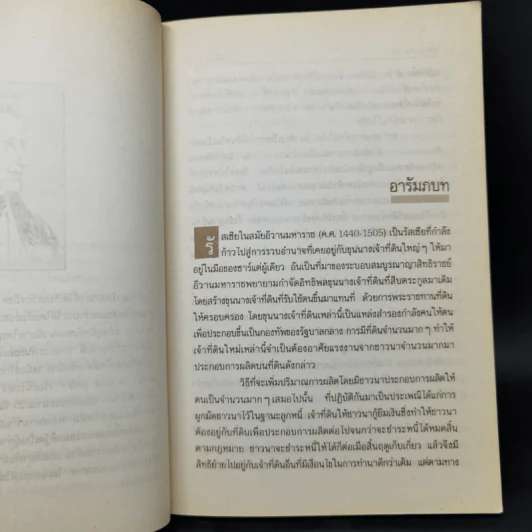 อารัมภบท
รัสเซียในสมัยอีวานมหาราช (ค.ศ. 1440-1505) เป็นรัสเซียที่กำลัง
ก้าวไปสู่การรวบอำนาจที่เคยอยู่กับขุนนางเจ้าที่ดินใหญ่ๆ ให้มา
อยู่ในมือของซาร์แต่ผู้เดียว อันเป็นที่มาของระบอบสมบูรณาญาสิทธิราชย์
อีวานมหาราชพยายามกำจัดอิทธิพลขุนนางเจ้าที่ดินที่สืบตระกูลมาเดิม
โดยสร้างขุนนางเจ้าที่ดินที่รับใช้ตนขึ้นมาแทนที่ ด้วยการพระราชทานที่ดิน
ให้ครอบครอง โดยขุนนางเจ้าที่ดินเหล่านี้เป็นแหล่งสำรองกำลังคนให้ตน
เพื่อประกอบขึ้นเป็นกองทัพของรัฐบาลกลาง การมีที่ดินจำนวนมากๆ ทำให้
เจ้าที่ดินใหม่เหล่านี้จำเป็นต้องอาศัยแรงงานจากชาวนาจำนวนมากมา
ประกอบการผลิตบนที่ดินดังกล่าว
วิธีที่จะเพิ่มปริมาณการผลิตโดยมีชาวนาประกอบการผลิตให้
ตนเป็นจำนวนมากๆ เสมอไปนั้น ที่ปฏิบัติกันมาเป็นประเพณีได้แก่การ
ผูกมัดชาวนาไว้ในฐานะลูกหนี้ เจ้าที่ดินให้ชาวนากู้ยืมเงินซึ่งทำให้ชาวนา
ต้องอยู่กับที่ดินเพื่อประกอบการผลิตต่อไปจนกว่าจะชำระหนี้ได้หมดสิ้น
ตามกฎหมาย ชาวนาจะชำระหนี้ให้ได้ก็ต่อเมื่อสิ้นฤดูเก็บเกี่ยว แล้วจึงมี
สิทธิย้ายไปอยู่กับเจ้าที่ดินอื่นที่มีเงื่อนไขในการทำนาดีกว่าเดิม แต่ตามทาง